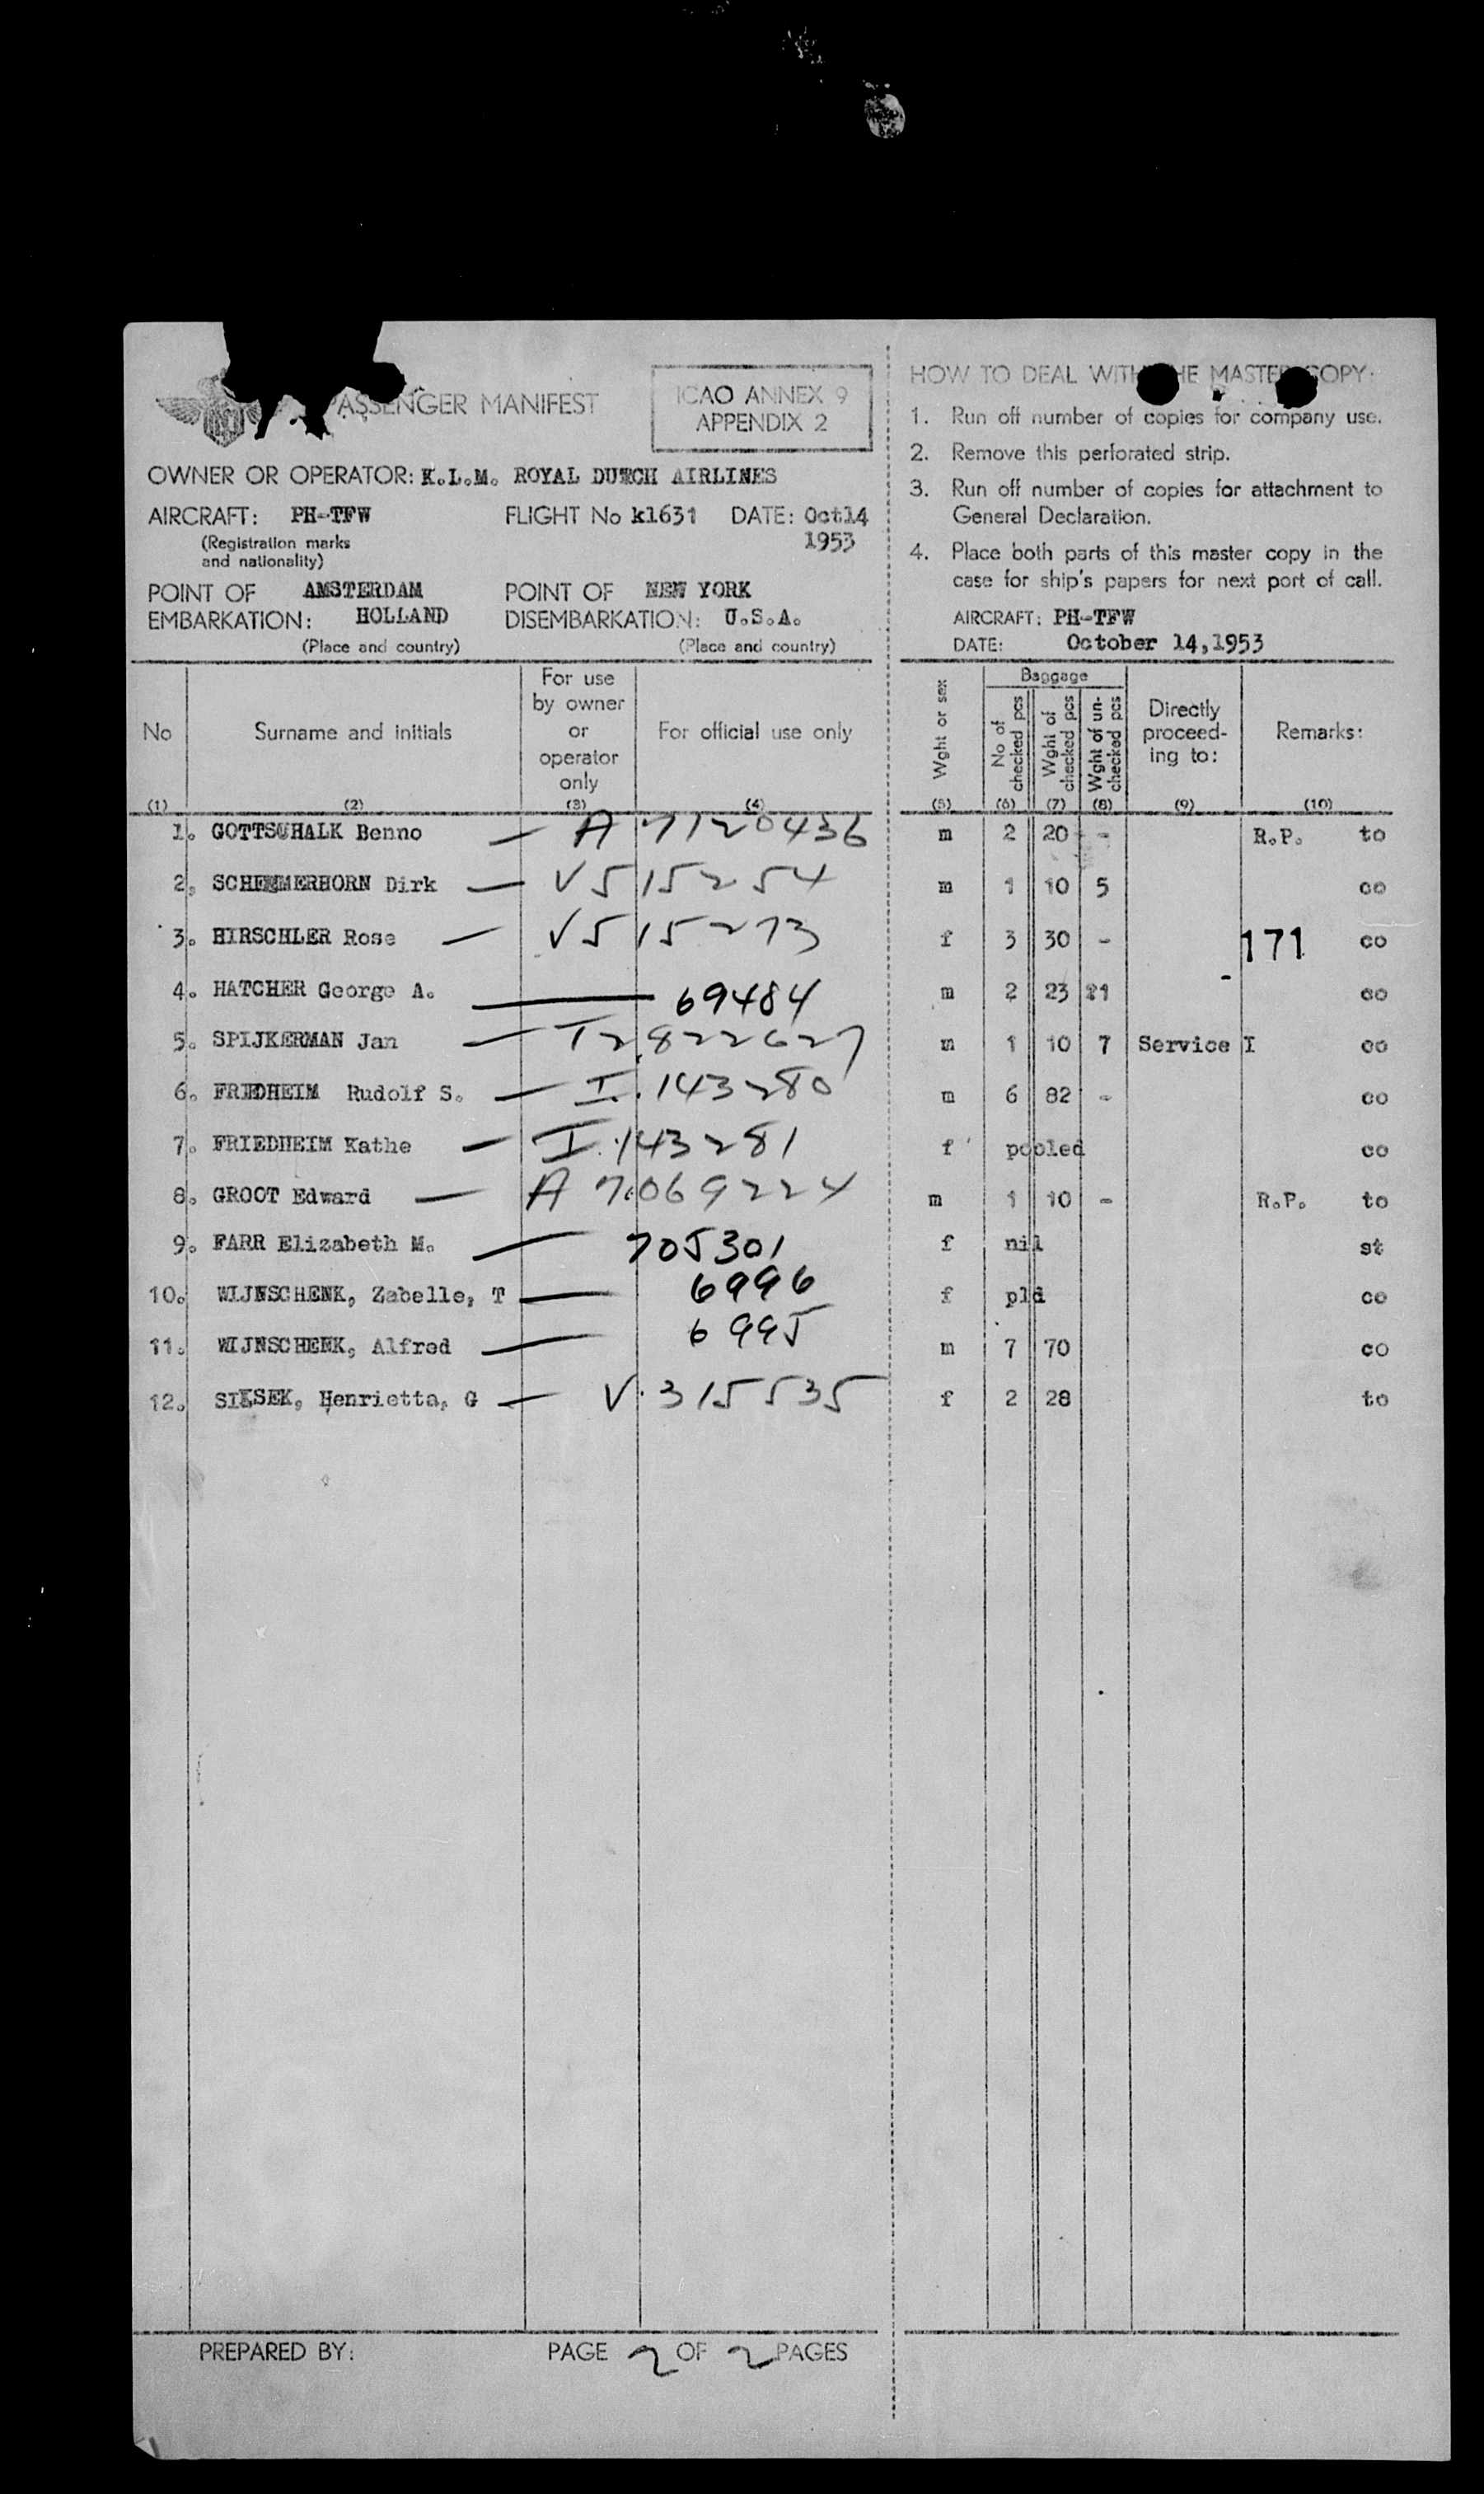 PASSENGER MANIFEST
ICAO ANNEX 9
APPENDIX 2
OWNER OR OPERATOR: K.L.M. ROYAL DUTCH AIRLINES
AIRCRAFT: PH-TFW FLIGHT No k1631 DATE: Oct14
(Registration marks 1953
and nationality)
POINT OF AMSTERDAM POINT OF NEW YORK
EMBARKATION: HOLLAND DISEMBARKATION: U.S.A.
(Place and country) (Place and country)
HOW TO DEAL WITH THE MASTER COPY.
1. Run off number of copies for company use.
2. Remove this perforated strip.
3. Run off number of copies for attachment to
General Declaration.
4. Place both parts of this master copy in the
case for ship's papers for next port of call.
AIRCRAFT: PH-TFW
DATE: October 14,1953
No
Surname and initials
For use
by owner
or
operator
only
For official use only
Wght or sex
Baggage
No of
checked pcs
Wght of
checked pcs
Wght of un-
checked pcs
Directly
proceed-
ing to:
Remarks:
(1) (2) (3) (4) (5) (6) (7) (8) (9) (10)
1. GOTTSCHALK Benno — A 7120436 m 2 20 - R.P. to
2. SCHERMERHORN Dirk — V 515254 m 1 10 5 co
3. HIRSCHLER Rose — V 515273 f 3 30 - 171 co
4. HATCHER George A. — 69484 m 2 23 co
5. SPIJKERMAN Jan — T2,822627 m 1 10 7 Service I co
6. FRIEDHEIM Rudolf S. — I.143280 m 6 82 - co
7. FRIEDHEIM Kathe — I.143281 f pooled co
8. GROOT Edward — A 7069224 m 1 10 - R.P. to
9. FARR Elizabeth M. — 705301 f nil st
10. WIJNSCHENK, Zabelle, T — 6996 f pld co
11. WIJNSCHENK, Alfred — 6995 m 7 70 co
12. Henrietta, G — V.315535 f 2 28 to
PREPARED BY: PAGE 2 OF 2 PAGES